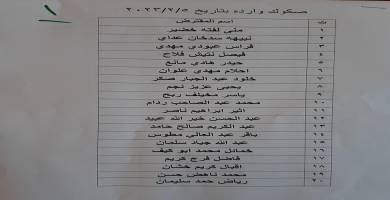 ١
صكوك واردة بتاريخ ٢٠٢٣/٢/٥
ت اسم المقترض
١ منى لفته خضير
٢ نبيهه سدخان عداي
٣ فراس عبودي مهدي
٤ فيصل نتيش فلاح
٥ حيدر هادي مانع
٦ احلام مهدي علوان
٧ خلود عبد الجبار صكر
٨ يحيى عزيز نجم
٩ ياسر مخيلف ربح
١٠ محمد عبد الصاحب ردام
١١ اثير ابراهيم ناصر
١٢ عبد الحسن خير الله عبيد
١٣ عبد الكريم صالح حامد
١٤ باقر عبد العالي مطوس
١٥ عبد الله جياد سلمان
١٦ خمائل محمد ابو كيف
١٧ فاضل فرج كريم
١٨ اقبال كريم خشان
١٩ محمد ناهض حسن
٢٠ رياض حمد سليمان